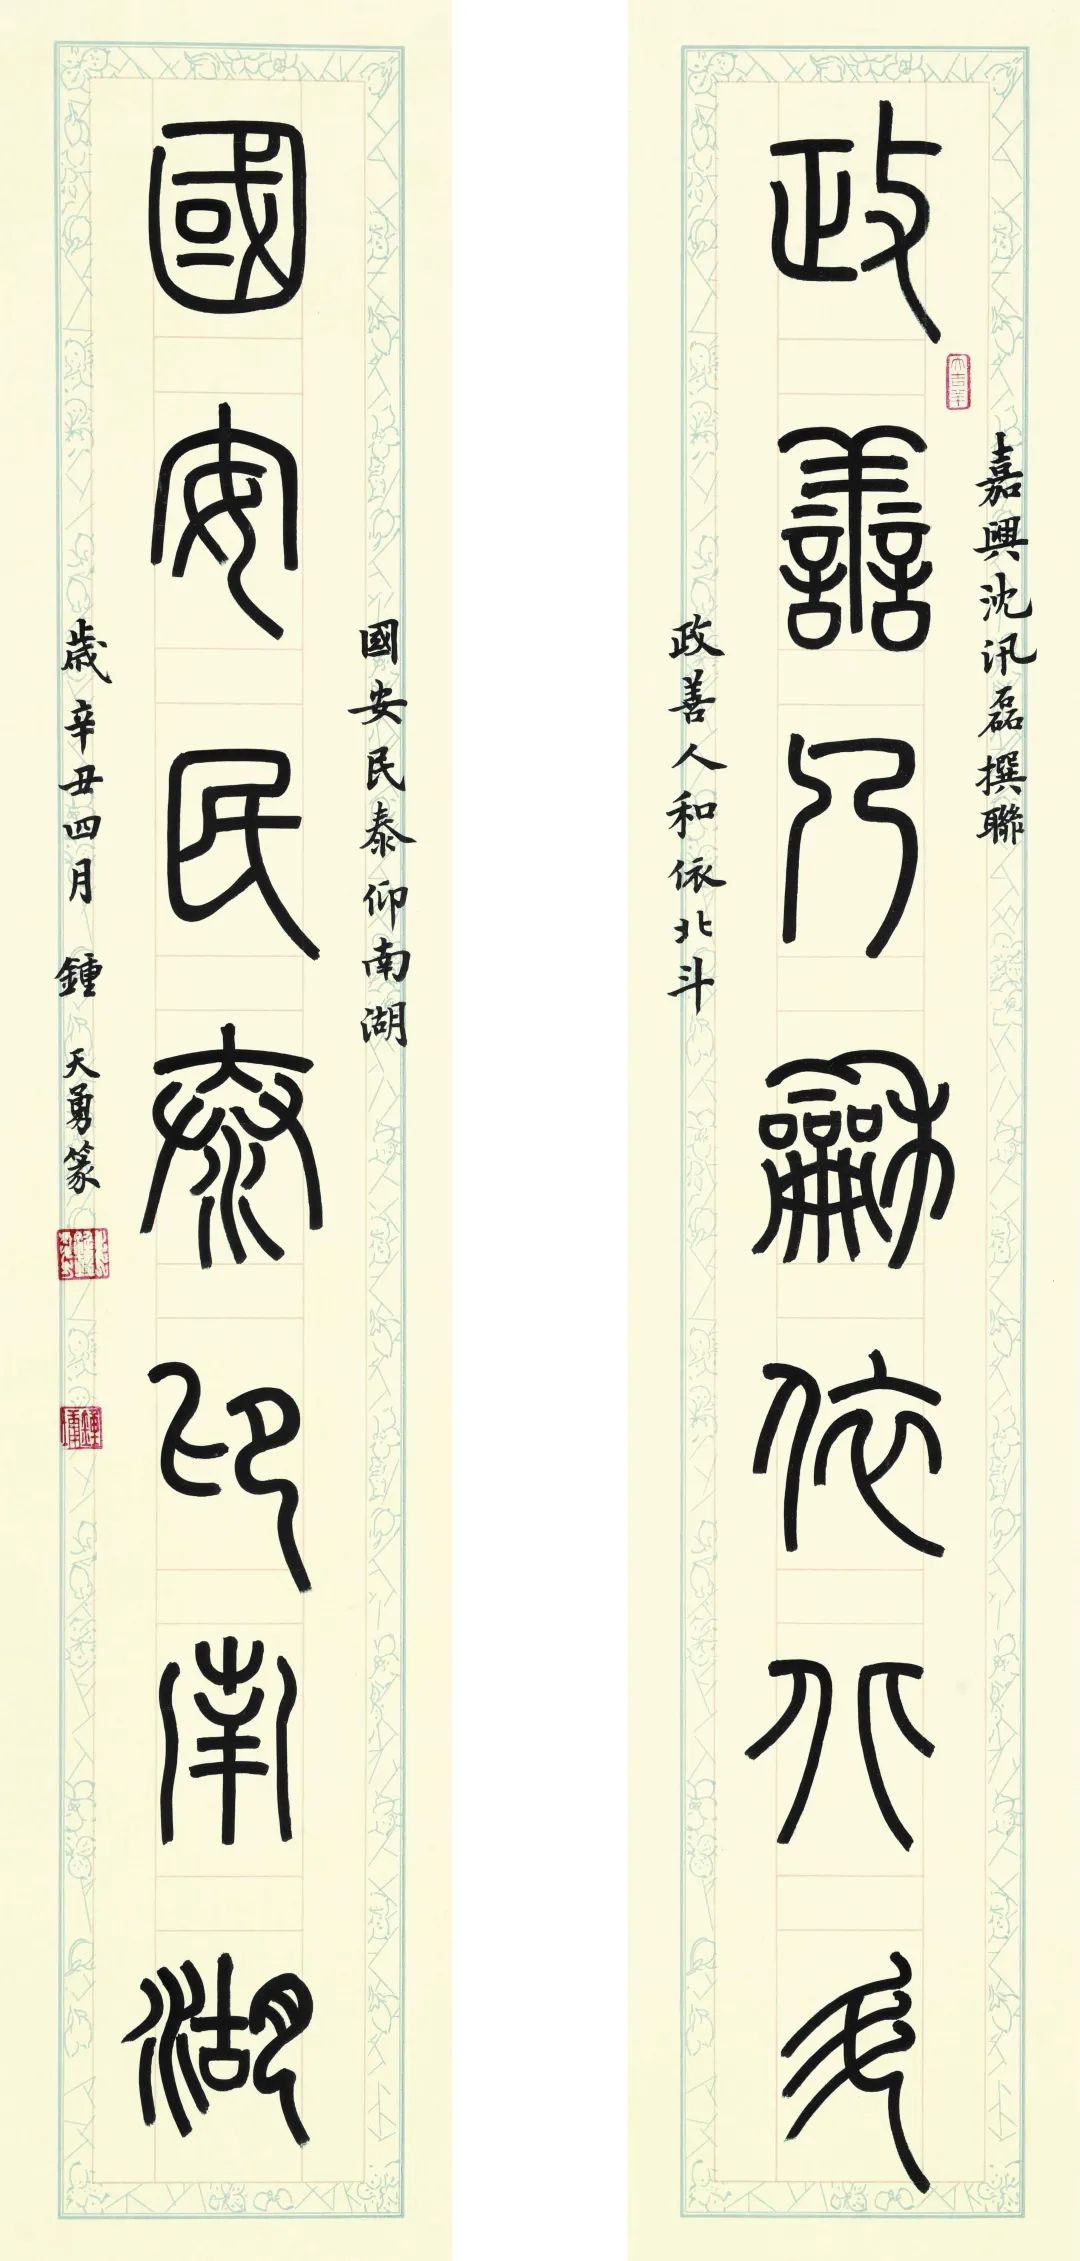 嘉興沈汛磊撰聯
政善人龢依北斗
政善人和依北斗
國安民泰仰南湖
國安民泰仰南湖
歲辛丑四月 鍾天勇篆
大吉羊